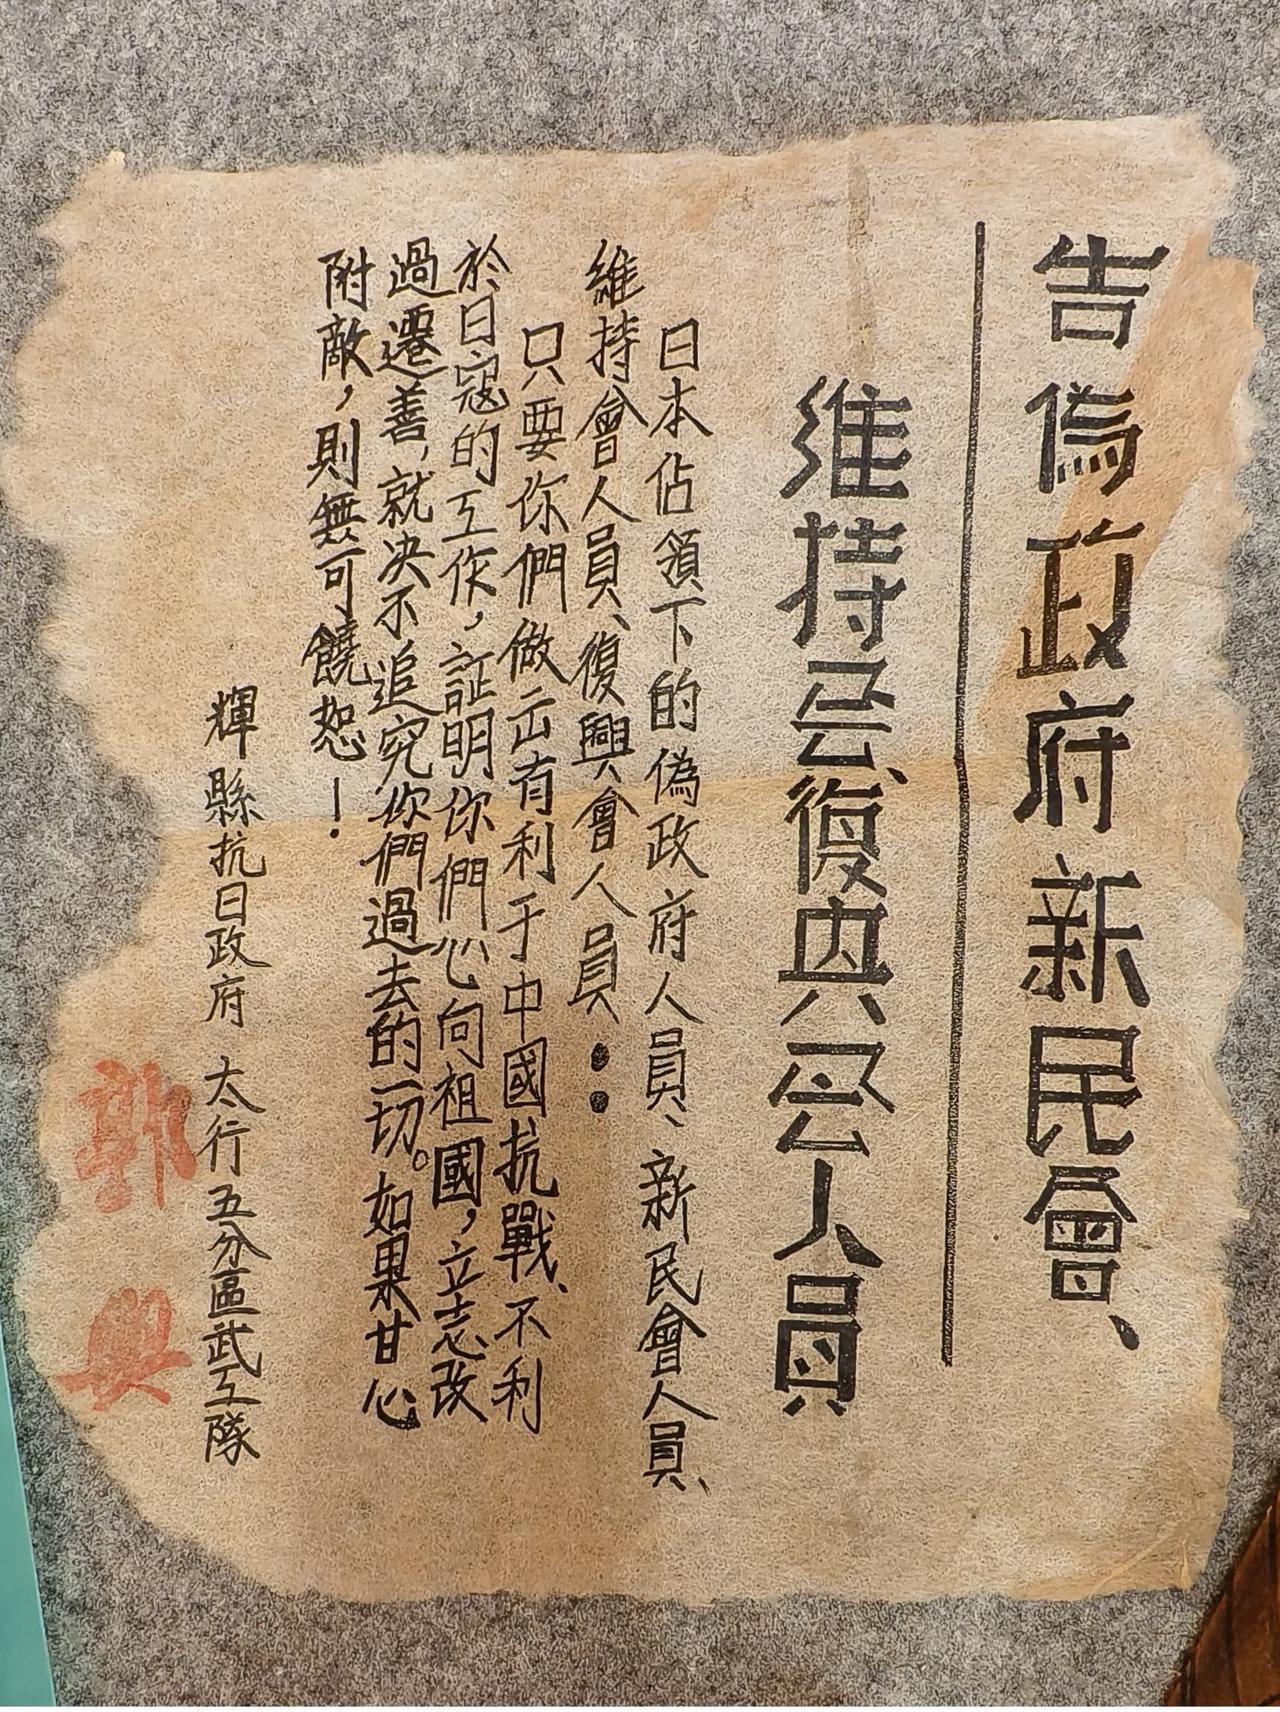 告偽政府新民會、
維持会、復興会人員
日本佔領下的偽政府人員、新民會人員、
維持會人員、復興會人員：
只要你們做出有利于中國抗戰、不利
於日寇的工作，証明你們心向祖國，立志改
過遷善，就决不追究你們過去的一切。如果甘心
附敵，則無可饒恕！
輝縣抗日政府 太行五分區武工隊
郭興